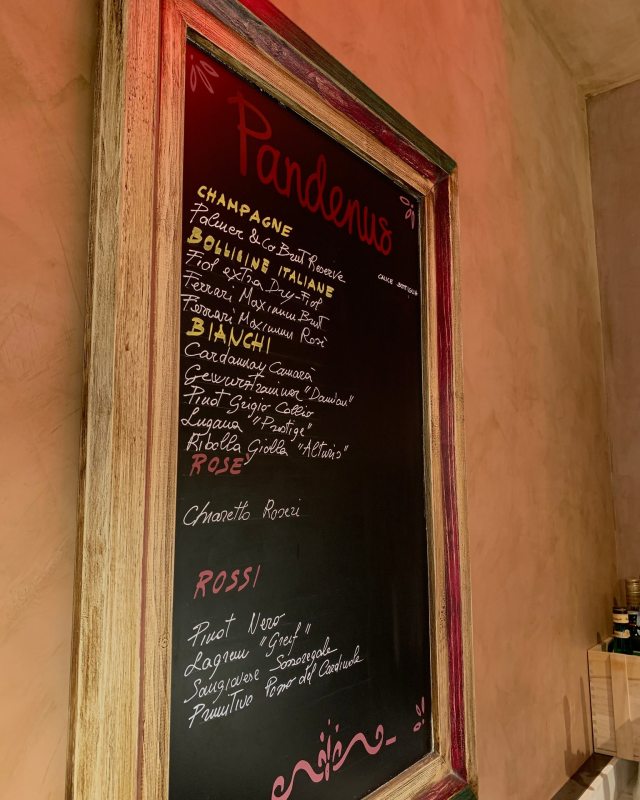 Pandenus
CHAMPAGNE
Palmer & Co Brut Reserve
CALICE BOTTIGLIA
BOLLICINE ITALIANE
Fiol extra Dry-Fiol
Ferrari Maximum Brut
Ferrari Maximum Rosè
BIANCHI
Cardannay Camarà
Gewurztraminer "Damian"
Pinot Grigio Collio
Lugana "Prestige"
Ribolla Gialla "Alturis"
ROSE'
Chiaretto Roseri
ROSSI
Pinot Nero
Lagrein "Greif"
Sangiovese Sassoregale
Primitivo Passo del Cardinale